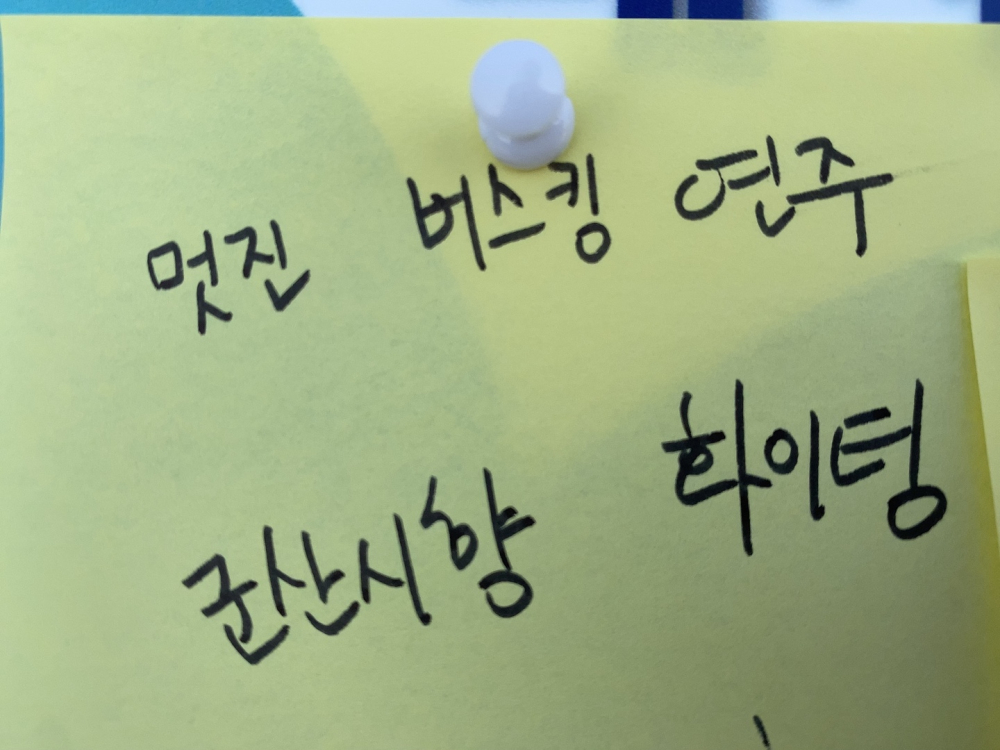 멋진 버스킹 연주
군산시향 화이팅